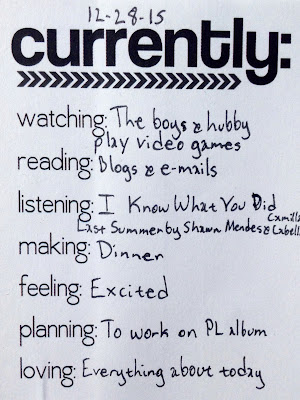 12-28-15
currently:
watching: The boys & hubby
play video games
reading: Blogs & e-mails
listening: I Know What You Did
Last Summer by Shawn Mendes & Camilla Cabell
making: Dinner
feeling: Excited
planning: To work on PL album
loving: Everything about today